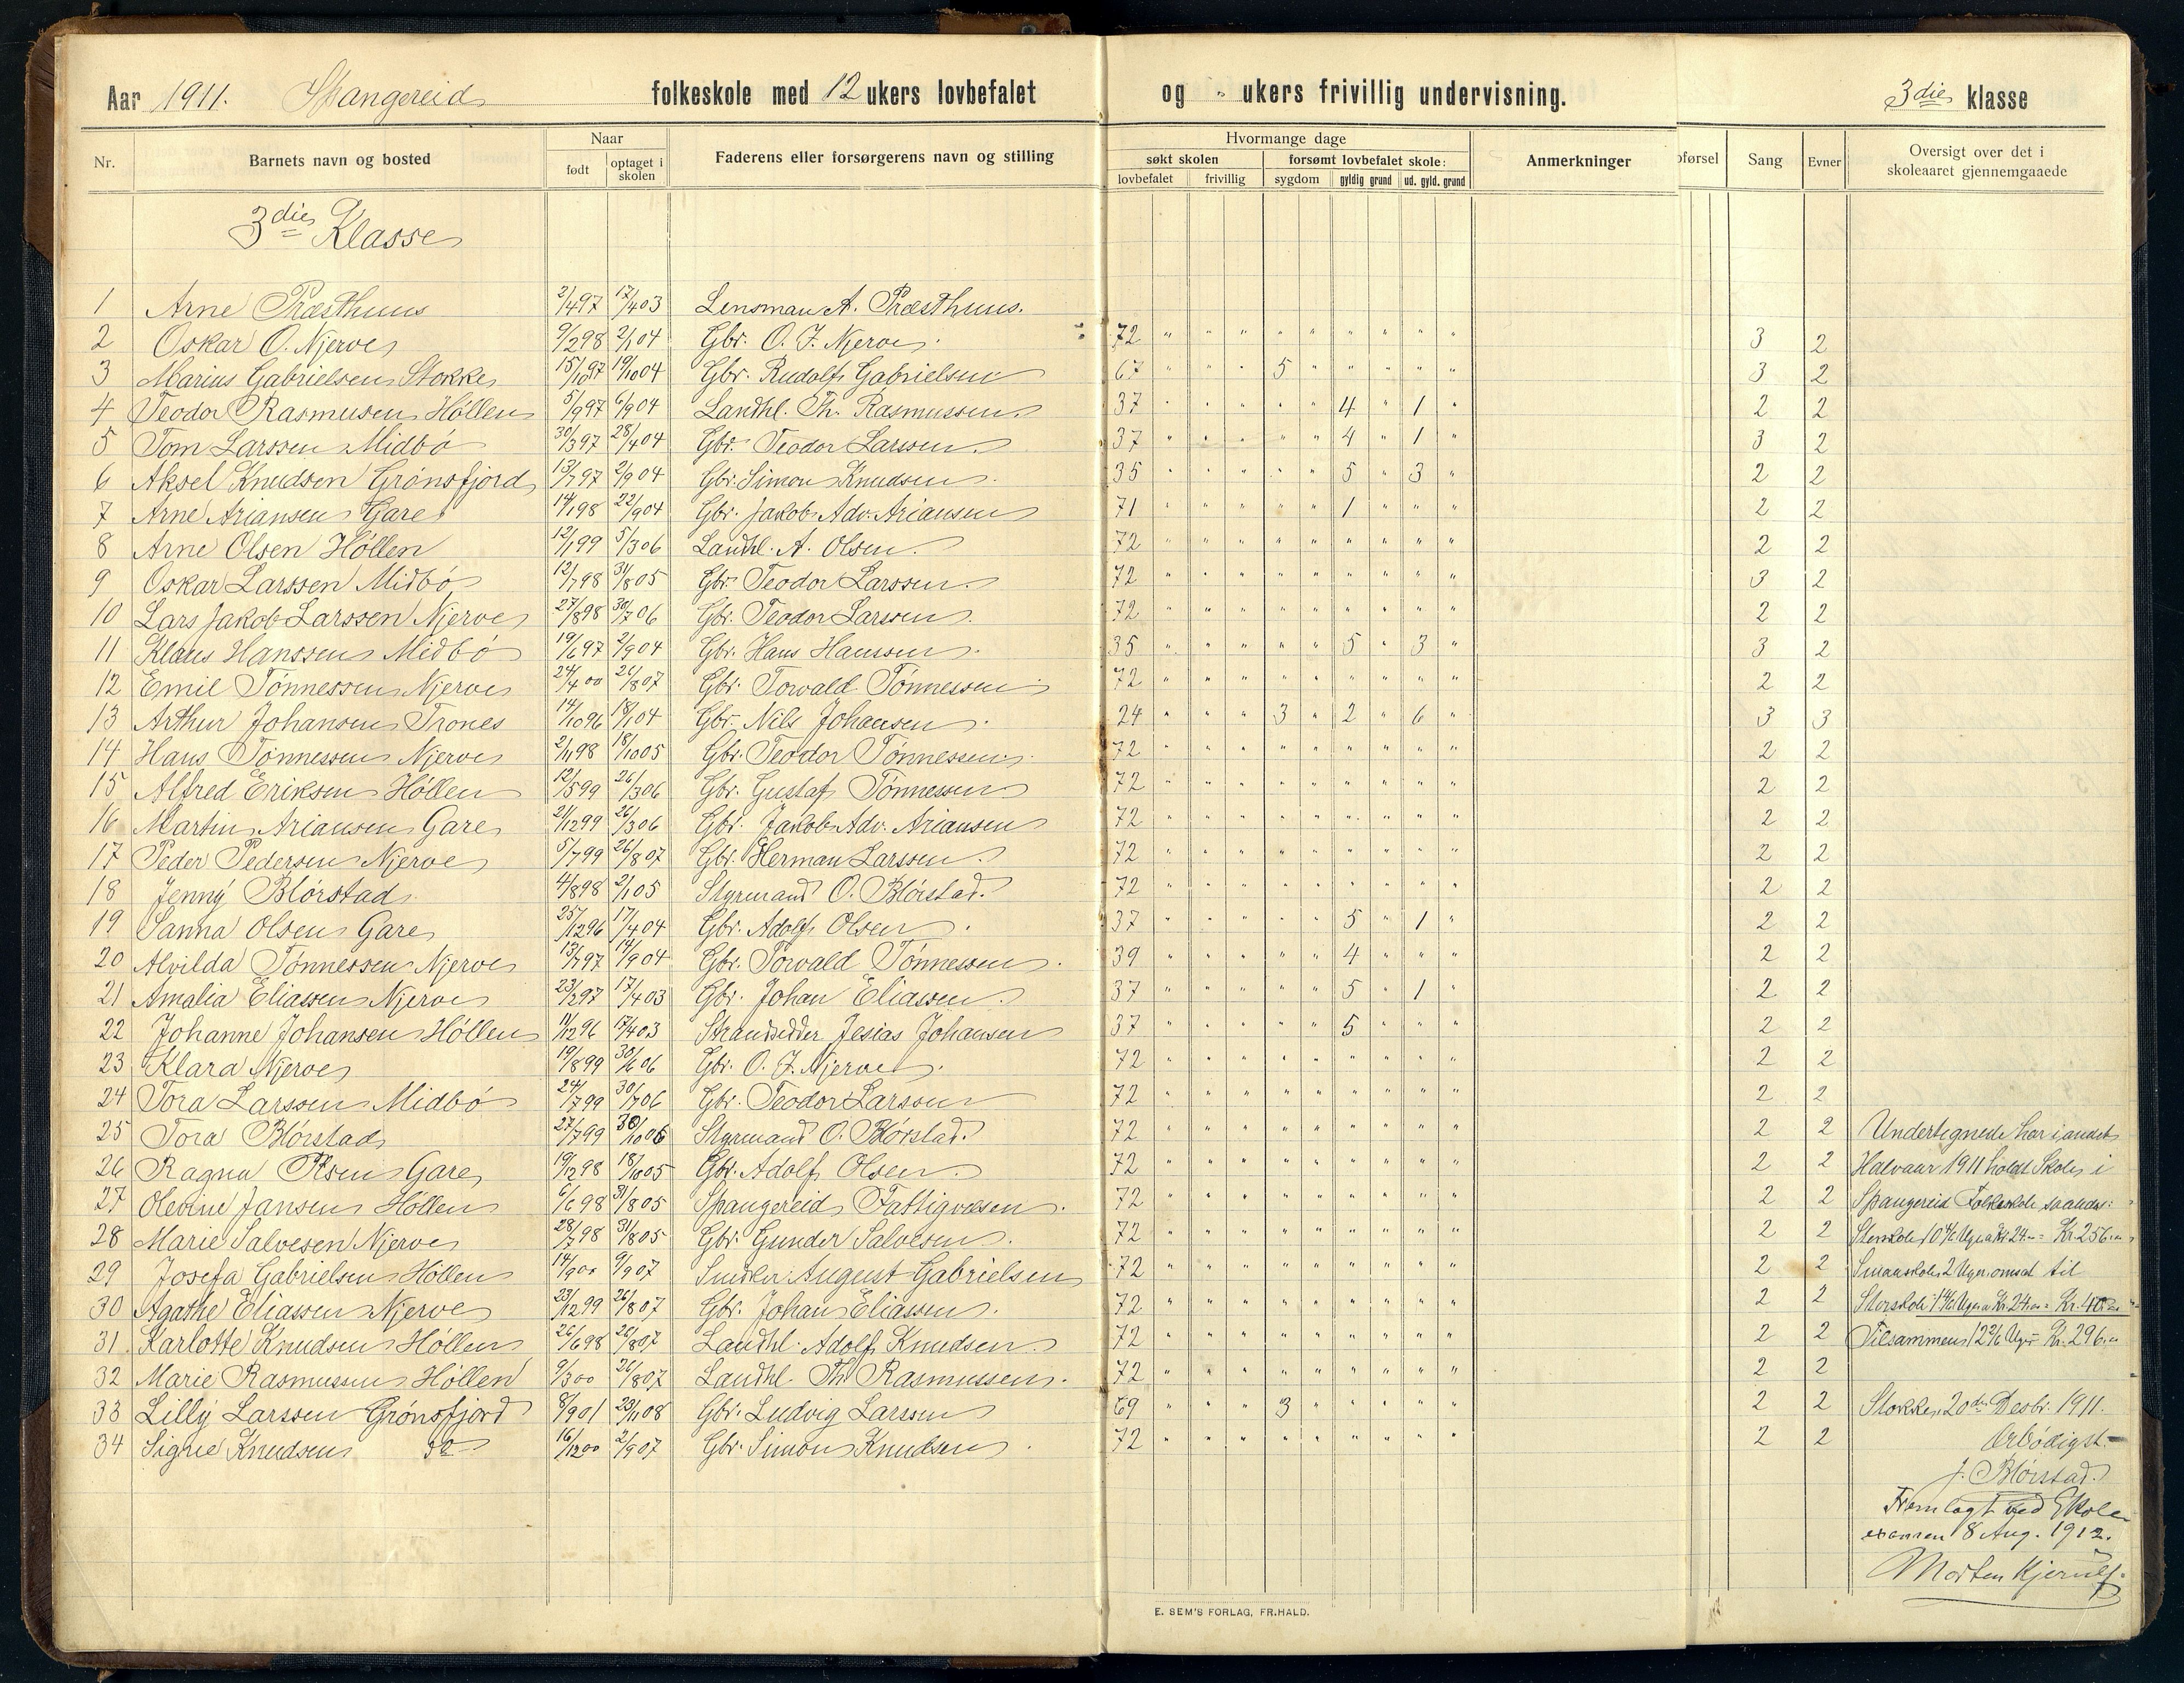 Aar 1911. Spangereid folkeskole med 12 ukers lovbefalet og " ukers frivillig undervisning. 3die klasse
Nr. Barnets navn og bosted Naar født optaget i skolen Faderens eller forsørgerens navn og stilling Hvormange dage søkt skolen lovbefalet frivillig forsømt lovbefalet skole: sygdom gyldig grund ud. gyld. grund Anmerkninger oførsel Sang Evner Oversigt over det i skoleaaret gjennemgaaede
3die Klasse
1 Arne Præsthuus 2/4 97 17/4 03 Lensman A. Præsthuus.
2 Oskar O. Njerve 9/2 98 2/1 04 Gbr. O. J. Njerve. 72 " " " " " " " " " 3 2
3 Marius Gabrielsen Stokke 15/10 97 19/10 04 Gbr. Rudolf Gabrielsen 67 " " " 5 " " " " " 3 2
4 Teodor Rasmusen Høllen 5/9 97 6/9 04 Landhl. Th. Rasmussen. 37 " " " " " 4 " 1 " 2 2
5 Tom Larssen Midbø 30/3 97 28/4 04 Gbr. Teodor Larssen. 37 " " " " " 4 " 1 " 3 2
6 Aksel Knudsen Grønsfjord 13/7 97 2/9 04 Gbr. Simon Knudsen. 35 " " " " " 5 " 3 " 2 2
7 Arne Ariansen Gare 14/1 98 22/9 04 Gbr. Jakob Adv. Ariansen 71 " " " " " 1 " " " 2 2
8 Arne Olsen Høllen 12/1 99 5/3 06 Landhl. A. Olsen. 72 " " " " " " " " " 2 2
9 Oskar Larssen Midbø 12/7 98 31/8 05 Gbr. Teodor Larssen. 72 " " " " " " " " " 3 2
10 Lars Jakob Larssen Njerve 27/8 98 30/7 06 Gbr. Teodor Larssen. 72 " " " " " " " " " 2 2
11 Klaus Hanssen Midbø 19/6 97 2/9 04 Gbr. Hans Hanssen. 35 " " " " " 5 " 3 " 3 2
12 Emil Tønnessen Njerve 24/4 00 26/8 07 Gbr. Torvald Tønnessen. 72 " " " " " " " " " 2 2
13 Arthur Johansen Trones 14/10 96 18/1 04 Gbr. Nils Johansen. 24 " " " 3 " 2 " 6 " 3 3
14 Hans Tønnessen Njerve 2/11 98 18/10 05 Gbr. Teodor Tønnessen. 72 " " " " " " " " " 2 2
15 Alfred Eriksen Høllen 12/5 99 26/3 06 Gbr. Gustaf Tønnessen 72 " " " " " " " " " 2 2
16 Martin Ariansen Gare 21/12 99 26/3 06 Gbr. Jakob Adv. Ariansen 72 " " " " " " " " " 2 2
17 Peder Pedersen Njerve 5/7 99 26/8 07 Gbr. Herman Larssen. 72 " " " " " " " " " 2 2
18 Jenny Blørstad 4/8 98 2/1 05 Styrmand O. Blørstad. 72 " " " " " " " " " 2 2
19 Sanna Olsen Gare 25/12 96 17/4 04 Gbr. Adolf Olsen. 37 " " " " " 5 " 1 " 2 2
20 Alvilda Tønnessen Njerve 13/7 97 14/9 04 Gbr. Torvald Tønnessen. 39 " " " " " 4 " " " 2 2
21 Amalia Eliassen Njerve 23/2 97 17/4 03 Gbr. Johan Eliassen. 37 " " " " " 5 " 1 " 2 2
22 Johanne Johansen Høllen 11/12 96 17/4 03 Strandsidder Jesias Johansen 37 " " " " " 5 " " " 2 2
23 Klara Njerve 19/8 99 30/6 06 Gbr. O. J. Njerve. 72 " " " " " " " " " 2 2
24 Tora Larssen Midbø 24/7 99 30/7 06 Gbr. Teodor Larssen 72 " " " " " " " " " 2 2
25 Tora Blørstad 27/7 99 30/10 06 Styrmand O. Blørstad. 72 " " " " " " " " " 2 2 Undertegnede har i andet
26 Ragna Olsen Gare 19/12 98 18/10 05 Gbr. Adolf Olsen. 72 " " " " " " " " " 2 2 Halvaar 1911 holdt Skole i
27 Olevine Jansen Høllen 6/6 98 31/8 05 Spangereid Fattigvæsen. 72 " " " " " " " " " 2 2 Spangereid Folkeskole saaledes:
28 Marie Salvesen Njerve 28/7 98 31/8 05 Gbr. Gunder Salvesen. 72 " " " " " " " " " 2 2 Storskole 10 4/6 Uger a Kr. 24.00 = Kr. 256.00
29 Josefa Gabrielsen Høllen 14/9 00 9/9 07 Snedker August Gabrielsen 72 " " " " " " " " " 2 2 Smaaskole 2 Uger omsat til
30 Agathe Eliassen Njerve 23/12 99 26/8 07 Gbr. Johan Eliassen. 72 " " " " " " " " " 2 2 Storskole: 1 4/6 Uger a Kr. 24.00 = Kr. 40.00
31 Karlotte Knudsen Høllen 26/6 98 26/8 07 Landhl. Adolf Knudsen. 72 " " " " " " " " " 2 2 Tilsammen 12 2/6 Uger Kr. 296.00
32 Marie Rasmussen Høllen 9/3 00 26/8 07 Landhl. Th. Rasmussen. 72 " " " " " " " " " 2 2
33 Lilly Larssen Grønsfjord 8/9 01 23/11 08 Gbr. Ludvig Larssen 69 " " " 3 " " " " " 2 2 Stokke, 20de Desbr. 1911.
34 Signe Knudsen do 16/12 00 2/9 07 Gbr. Simon Knudsen. 72 " " " " " " " " " 2 2 Ærbødigst
J. Blørstad.
Fremlagt ved Skole-
examen 8 Aug. 1912.
Morten Kjerulf.
E. SEM'S FORLAG, FR.HALD.